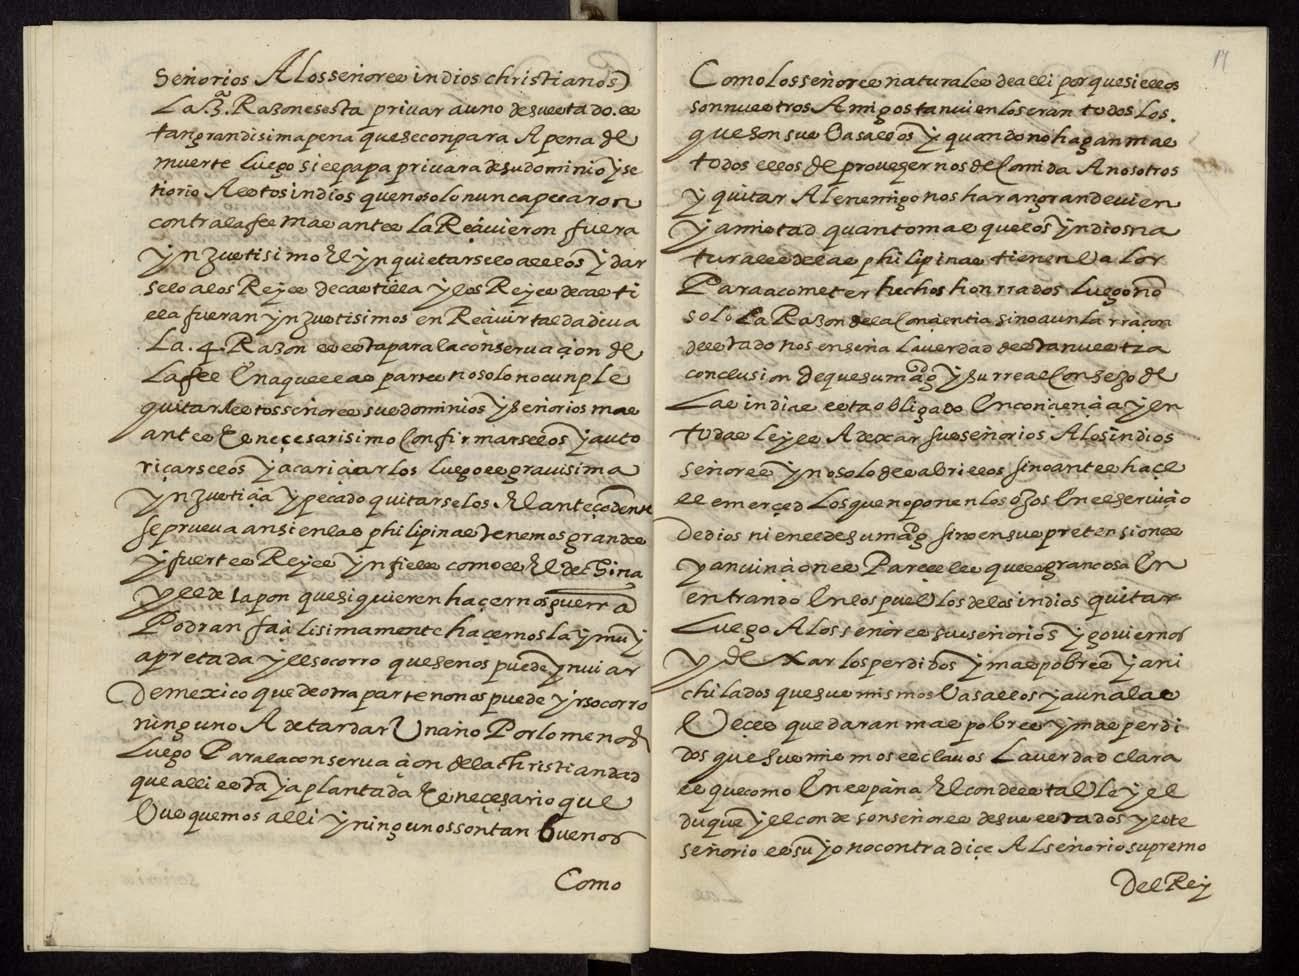 Señorios A los señores indios christianos
La 3ª. Razon es esta priuar a uno de su estado es
tan grandisima pena que se conpara A pena de
muerte luego si el papa priuara de su dominio y se
ñorio A estos indios que no solo nunca pecaron
contra la fee mas antes la Reciuieron fuera
ynjustisimo El ynquietarselo a ellos y dar
selo a los Reyes de castilla y los Reyes de casti
lla fueran ynjustisimos en Reciuir tal dadiua
La .4. Razon es esta para la conseruacion de
la fee En aquellas partes no solo no cunple
quitarles estos señores sus dominios y señorios mas
antes Es neçesarisimo Confirmarselos y auto
riçarselos y acariciarlos luego es grauisima
ynjusticia y pecado quitarselos El anteçedente
se prueua ansi en las philipinas tenemos grandes
y fuertes Reyes ynfieles como es El de china
y el de Iapon que si quieren haçernos guerra
Podran façilisimamente haçernosla y muy
apretada y el socorro que se nos puede ynuiar
De mexico que de otra parte no nos puede yr socorro
ninguno A de tardar Un año Por lo menos
Luego Para la conseruacion de la Christiandad
que alli esta ya plantada Es neçesario que
Busquemos alli y ningunos son tan buenos
Como
17
Como los señores naturales de alli porque si ellos
son nuestros Amigos tanuien lo seran todos los
que son sus Vasallos y quando no hagan mas
todos ellos de proueyernos de Comida A nosotros
y quitar Al enemigo nos haran grande uien
y amistad quanto mas que los yndios na
turales de las philipinas tienen Valor
Para acometer hechos honrrados luego no
solo La Razon de la Conçientia sino aun la rraçon
de estado nos enseña la uerdad de esta nuestra
conclusion De que su magd y su rreal Consejo de
Las indias esta obligado En conçiençia y en
todas leyes A dexar sus señorios A los indios
señores y no solo de abrillos sino antes haçe
lles merçed los que no ponen los ojos En el seruiçio
De dios ni en el de su magd sino en sus pretensiones
y anuiniçiones Pareseles que es gran cosa En
entrando En los pueblos de los indios quitar
Luego A los señores sus señorios y gouiernos
y dexarlos perdidos y mas pobres y ani
chilados que sus mismos Vasallos y aun a las
Veçes quedaran mas pobres y mas perdi
dos que sus mesmos esclauos La uerdad clara
es que como En españa El conde estable y el
duque y el conde son señores de sus estados y este
señorio es suyo no contradiçe Al señorio supremo
Del Rey